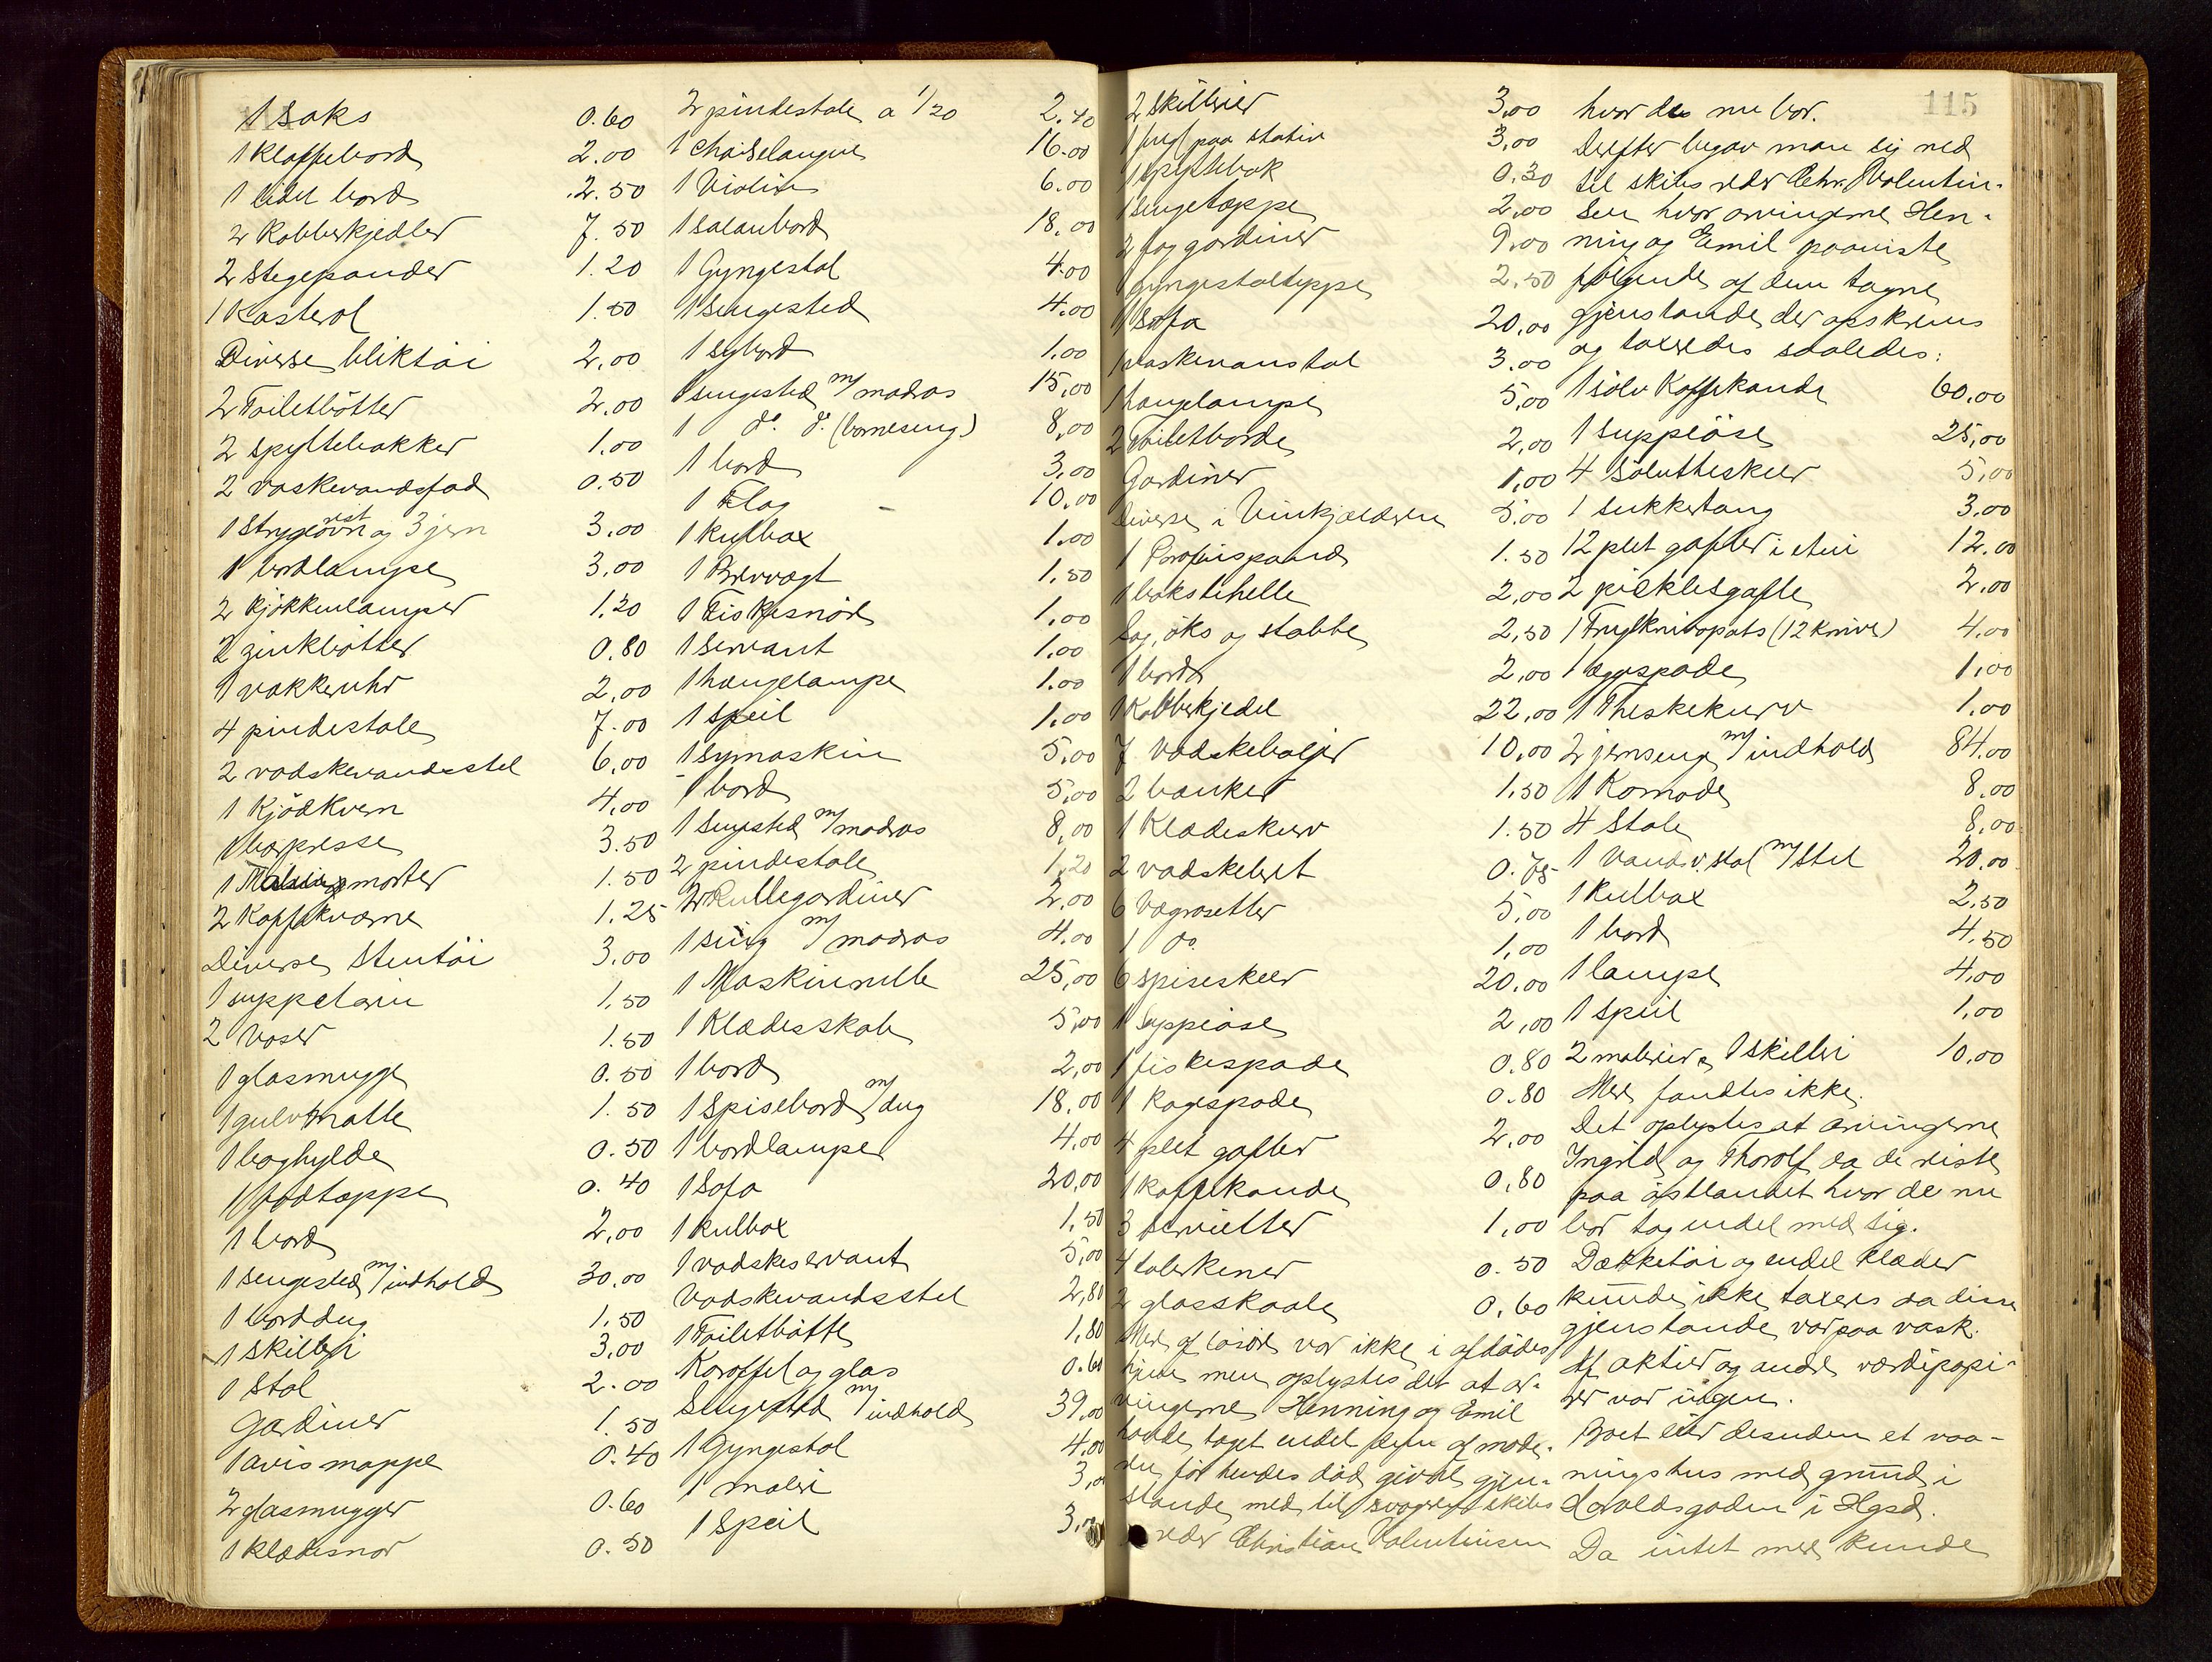 1 Saks 0.60
1 Klaffebord 2.00
1 lidet bord 2.50
2 Kobberkjedler 7.50
2 Stegepander 1.20
1 Kasterol 1.50
Diverse bliktöi 2,00
2 Toiletbötter 2.00
2 Spyttebakker 1.00
2 vaskevandsfad 0.50
1 Strygeovn rist og 3 jern 3.00
1 bordlampe 3,00
2 kjökkenlamper 1.20
2 zinkbötter 0.80
1 vækkeruhr 2,00
4 pindestole 7.00
2 vadskevandsstel 6,00
1 Kjödkvern 4,00
1 bærpresse 3.50
1 morter 1.50
2 Kaffekværne 1.25
Diverse Stentöi 3,00
1 suppeterin 1.50
2 Vaser 1.50
1 glasmugge 0.50
1 gulvmatte 1.50
1 boghylde 0.50
1 fodtæppe 0.40
1 bord 2,00
1 sengested m/indhold 30,00
1 borddug 1.50
1 Skilleri 3,00
1 Stol 2.00
Gardiner 1.50
1 avismappe 0.40
2 glasmugger 0.60
1 klædesnor 0.50
2 pindestole a 1/20 2.40
1 Chaiselangue 16.00
1 Violin 6.00
1 salonbord 18,00
1 Gyngestol 4.00
1 Sengested 4.00
1 sybord 1.00
1 sengested m/madras 15,00
1 do. do. (barneseng) 8,00
1 bord 3,00
1 Flag - 10.00
1 kulbox 1.00
1 Brevvægt 1.50
1 Fiskesnöre 1,00
1 Servant 1.00
1 hængelampe 1.00
1 Speil 1,00
1 symaskin 5,00
1 bord 5,00
1 Sengsted m/madras 8,00
2 pindestole 1,20
2 Rullegardiner 2,00
1 seng m/madras 4.00
1 Maskinrulle 25,00
1 Klædesskab 5,00
1 bord 2,00
1 Spisebord m/dug 18,00
1 bordlampe 4,00
1 Sofa 20,00
1 kulbox 1,50
1 vadskeservant 5,00
Vadskevandsstel 2,80
1 Toiletbötte 1,80
Karaffel og glas 0.60
Sengested m/indhold 39,00
1 Gyngestol 4.00
1 maleri 3,00
1 Speil
2 Skillerier 3,00
1 paa stativ 3,00
1 spyttebak 0.30
1 sengetæppe 2,00
2 fag gardiner 9.00
1 gyngestoltæppe 2,50
1 Sofa 20,00
1 vaskevanstol 3.00
1 hangelampe 5,00
2 Toiletborde 2,00
Gardiner 1,00
Diverse i Vinkjælderen 5.00
1 Parafinspand 1.50
1 bakstehelle 2,00
Sag, öks og stabbe 2,50
1 bord 2,00
1 Kobberkjedel 22,00
7 vadskebaljer 10,00
2 bænker 1.50
1 Klædeskurv 1.50
2 vadskebret 0.75
6 Vægrosetter 5,00
1 do. 1,00
6 spiseskeer 20,00
1 Suppeöse 2,00
1 fiskespade 0.80
1 kagespade 0.80
4 plet gafler 2.00
1 kaffekande 0,80
3 servietter 1,00
4 talerkener 0.50
2 glasskaale 0,60
Mere af lösöre var ikke i afdödes
hjem men oplystes det at ar-
vingerne Henning og Emil
havde taget endel dem af mode-
ren för hendes död givne gjen-
stande med til svogeren skibs
reder Christian Valentinsen
115
hvor de nu bor.
Derefter begav man sig ned
til skibsreder Chr. Valentin-
sen hvor arvingerne Hen-
ning og Emil paaviste
fölgende af dem tagne
gjenstande der opskrives
og taxeredes saaledes:
1 sölv Kaffekande 60.00
1 suppeöse 25,00
4 Sölvtheskeer 5,00
1 sukkertang 3.00
12 plet gafler i etui 12.00
2 pickelsgafle 2.00
1 Frugtknivspats (12 knive) 4.00
1 æggespade 1,00
1 Theskekurv 1.00
2 jernsenge m/indhold 84.00
1 Komode 8.00
4 Stole 8,00
1 Vandv.stol m/Stel 20.00
1 kulbox 2,50
1 bord 4,50
1 lampe 4,00
1 speil 1,00
2 malerier & 1 Skilleri 10,00
Mere fandtes ikke.
Det oplystes at arvingerne
Ingrid og Thorolf da de reiste
paa östlandet hvor de nu
bor tog endel med sig.
Dækketöi og endel Klæder
kunde ikke taxeres da disse
gjenstande var paa vask.
Af aktier og andre værdipapi-
rer var ingen.
Boet eier desuden et vaa-
ningshus med grund i
Haraldsgaden i Hgsd.
Da intet mere kunde